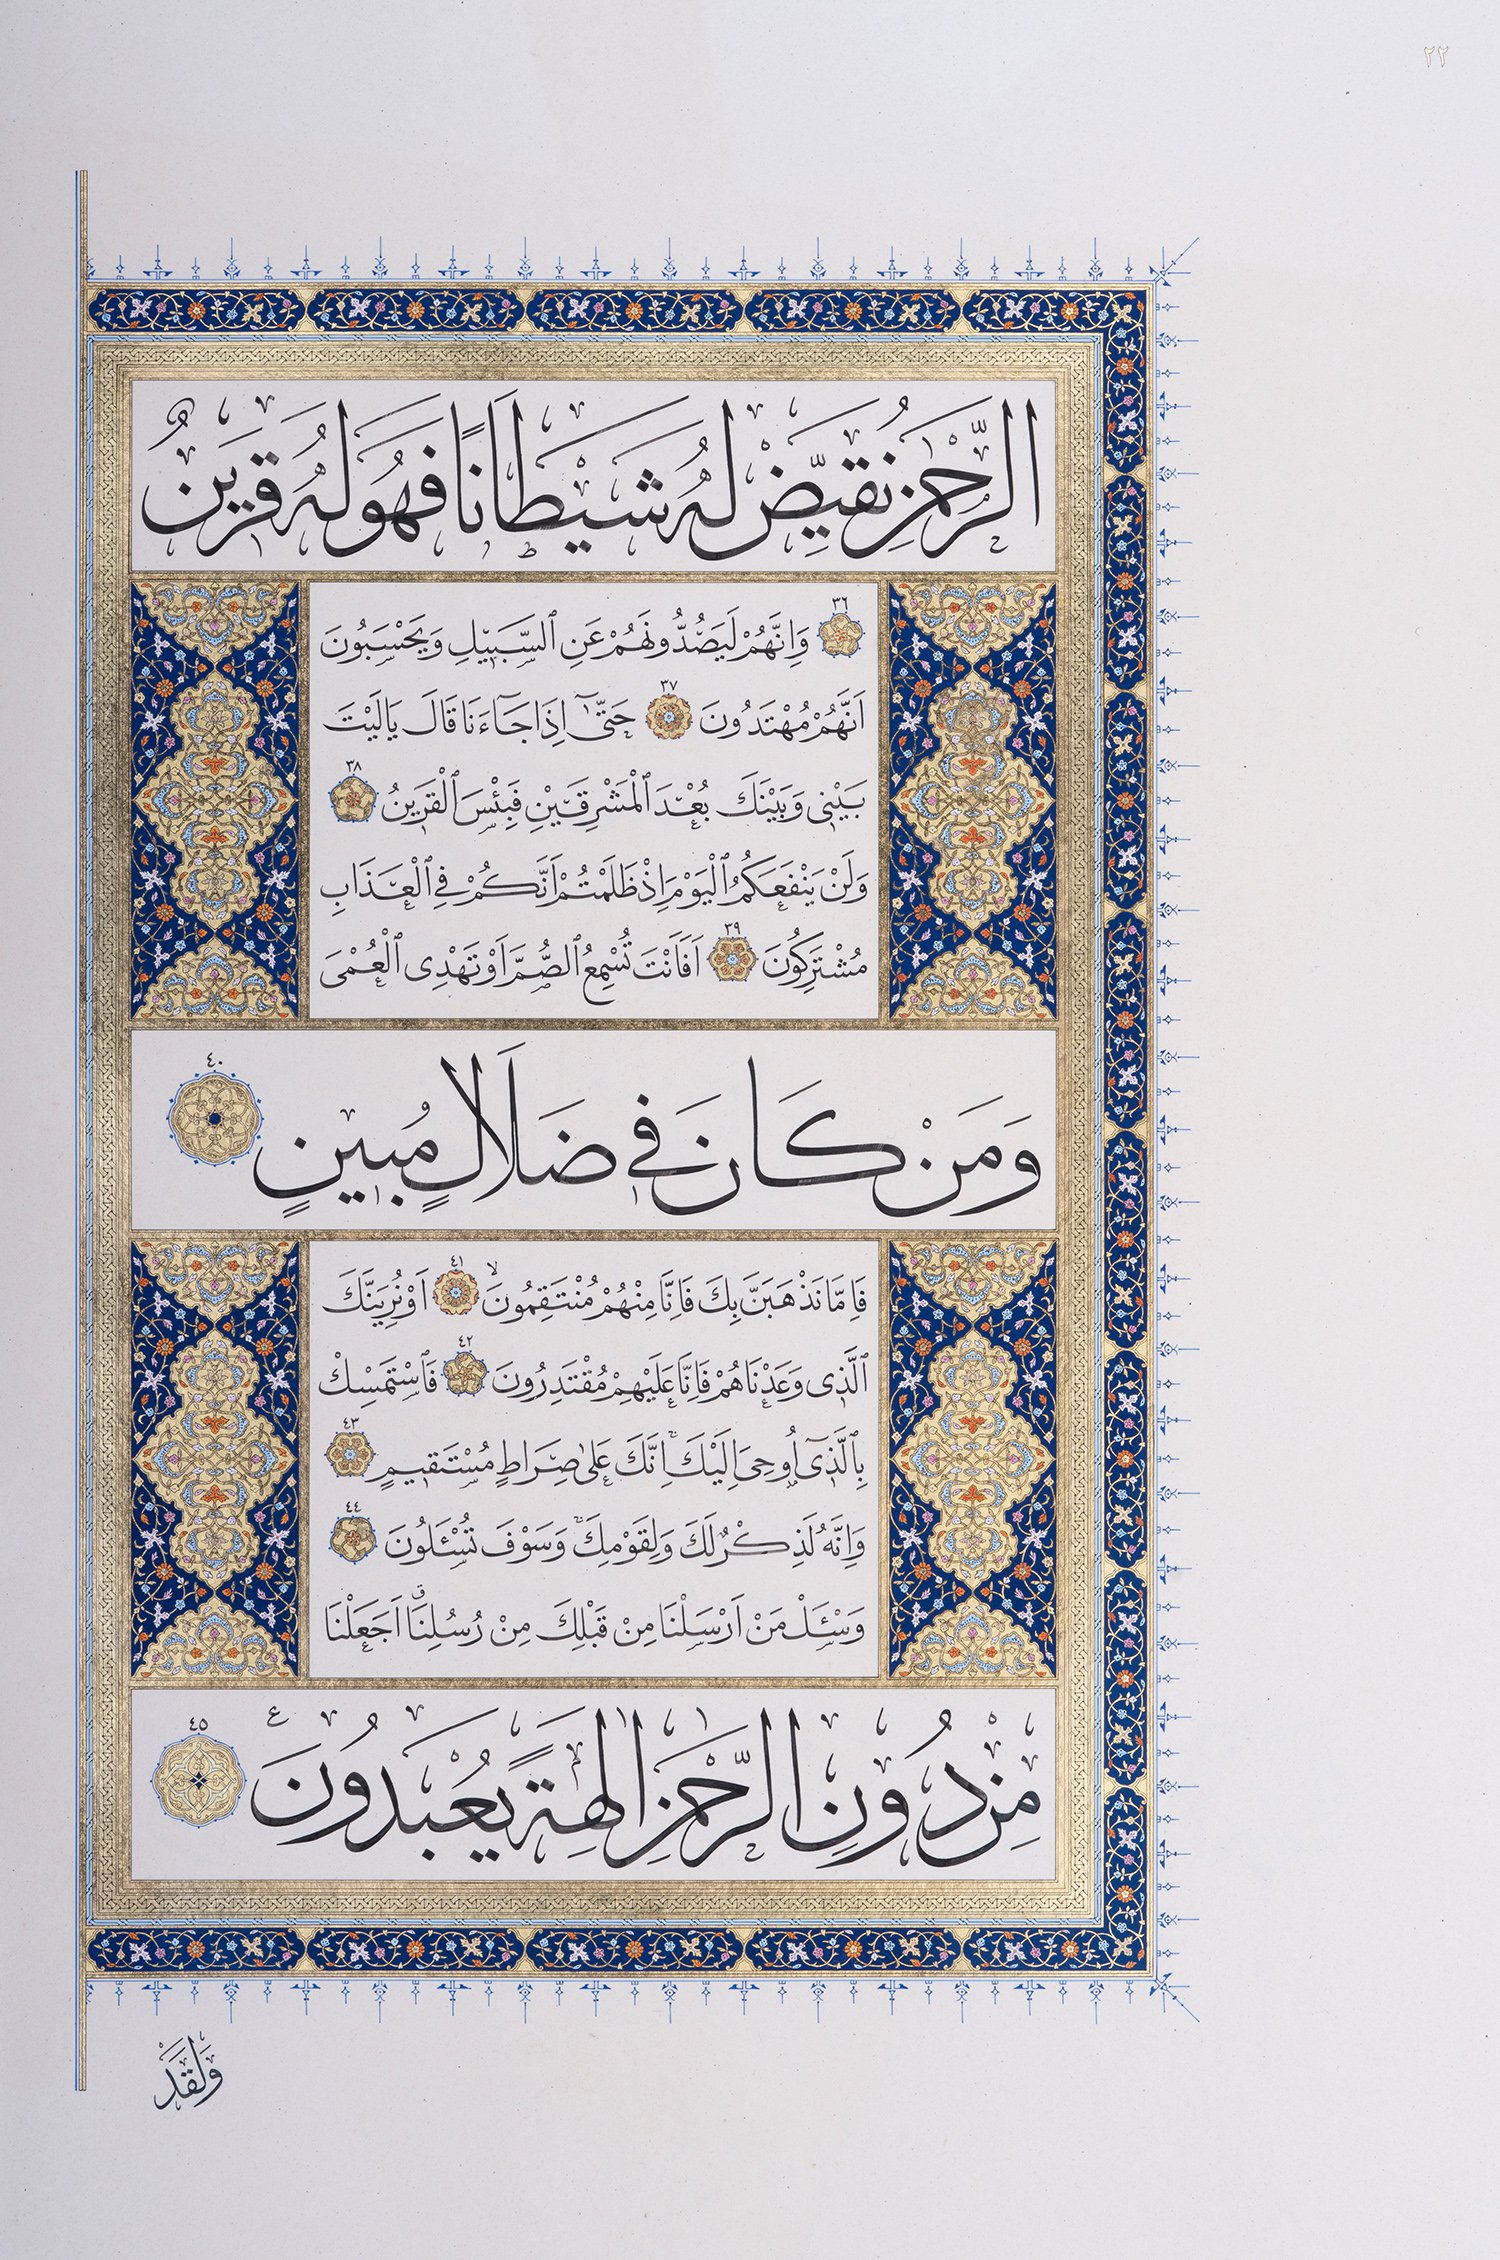 ٢٢
الرَّحْمٰنِ نُقَيِّضْ لَهُ شَيْطَانًا فَهُوَ لَهُ قَرِينٌ
٣٦ وَاِنَّهُمْ لَيَصُدُّونَهُمْ عَنِ ٱلسَّبِيلِ وَيَحْسَبُونَ
اَنَّهُمْ مُهْتَدُونَ ٣٧ حَتّٰٓى اِذَا جَٓاءَنَا قَالَ يَالَيْتَ
بَيْنِى وَبَيْنَكَ بُعْدَ ٱلْمَشْرِقَيْنِ فَبِئْسَ ٱلْقَرِينُ ٣٨
وَلَنْ يَنْفَعَكُمُ ٱلْيَوْمَ اِذْ ظَلَمْتُمْ اَنَّكُمْ فِى ٱلْعَذَابِ
مُشْتَرِكُونَ ٣٩ اَفَاَنْتَ تُسْمِعُ ٱلصُّمَّ اَوْ تَهْدِى ٱلْعُمْىَ
وَمَنْ كَانَ فِى ضَلَالٍ مُبِينٍ ٤٠
فَاِمَّا نَذْهَبَنَّ بِكَ فَاِنَّا مِنْهُمْ مُنْتَقِمُونَۙ ٤١ اَوْ نُرِيَنَّكَ
ٱلَّذِى وَعَدْنَاهُمْ فَاِنَّا عَلَيْهِمْ مُقْتَدِرُونَ ٤٢ فَٱسْتَمْسِكْ
بِٱلَّذِٓى اُو۫حِىَ اِلَيْكَۚ اِنَّكَ عَلٰى صِرَاطٍ مُسْتَقِيمٍ ٤٣
وَاِنَّهُ لَذِكْرٌ لَكَ وَلِقَوْمِكَۚ وَسَوْفَ تُسْـَٔلُونَ ٤٤
وَسْـَٔلْ مَنْ اَرْسَلْنَا مِنْ قَبْلِكَ مِنْ رُسُلِنَاۗ اَجَعَلْنَا
مِنْ دُونِ الرَّحْمٰنِ اٰلِهَةً يُعْبَدُونَ ع ٤٥
وَلَقَدْ